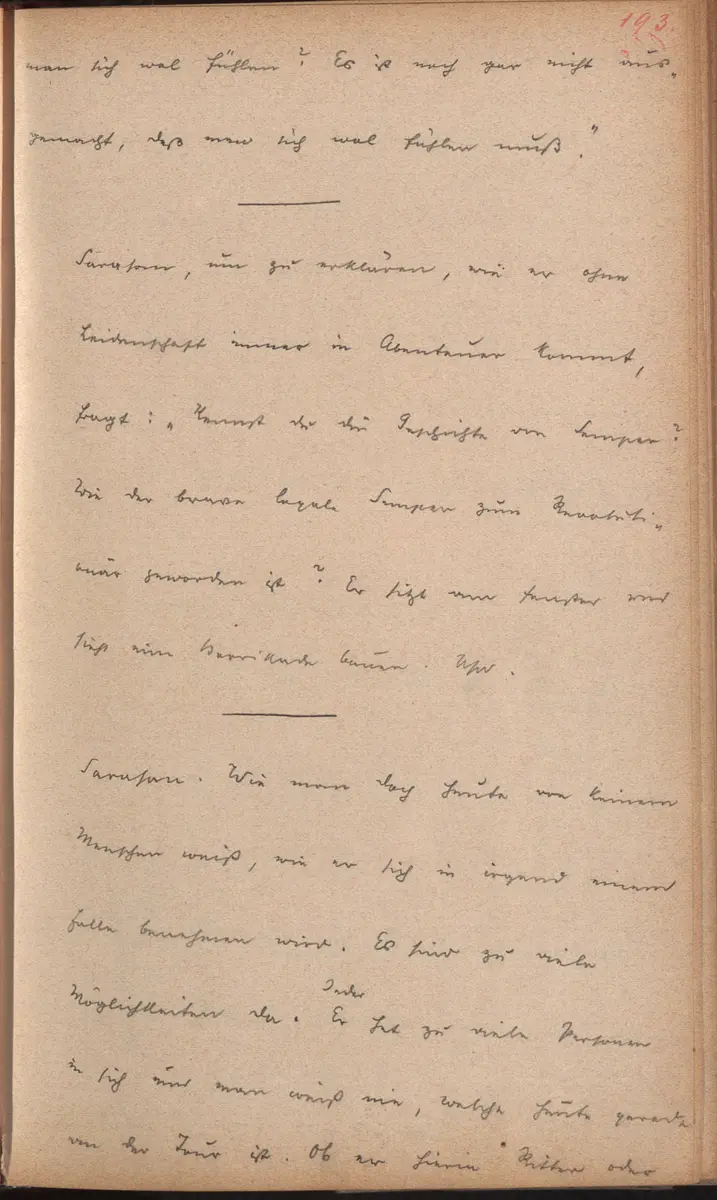 193.
man sich wol fühlen? Es ist noch gar nicht aus-
gemacht, daß man sich wol fühlen muß."
Sarason, um zu erklären, wie er ohne
Leidenschaft immer in Abenteuer kommt,
fragt: „Kennst du die Geschichte von Semper?
Wie der brave loyale Semper zum Revoluti-
onär geworden ist? Er sitzt am Fenster und
sieht eine Barrikade bauen. Usw.
Sarason. Wie man doch heute von keinem
Menschen weiß, wie er sich in irgend einem
Falle benehmen wird. Es sind zu viele
Jeder
Möglichkeiten da. Er hat zu viele Personen
in sich und man weiß nie, welche heute gerade
an der Tour ist. Ob er hierin Ritter oder